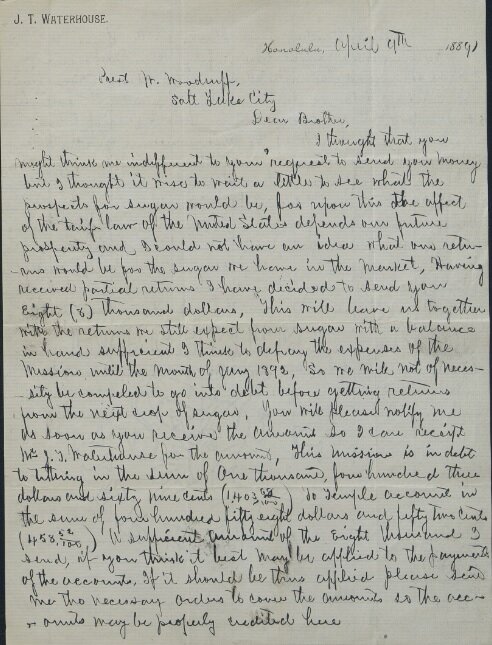 J. T. WATERHOUSE.
Honolulu, April 9th 1889 1
Prest W. Woodruff,
Salt Lake City
Dear Brother,
I thought that you
might think me indifferent to your request to send you money
but I thought it wise to wait a little to see what the
prospects for sugar would be, for upon this the affect
of the tariff law of the United States depends our future
prosperity and I could not have an idea what our retu-
rns would be for the sugar we have in the market, Having
received partial returns I have decided to send you
Eight (8) thousand dollars, This will leave us together
with the returns we still expect from sugar with a balance
in hand sufficient I think to defray the expenses of the
Mission until the month of Jany 1892, So we will not of neces-
sity be compeled to go into debt before getting returns
from the next crop of sugar, You will please notify me
as soon as you receive the amount so I can receipt
Mr J. T. Waterhouse for the amount, This mission is in debt
to tithing in the sum of One thousand, four hundred three
dollars and sixty nine cents (1403 69/100) To Temple account in
the sum of four hundred fifty eight dollars and fifty two cents
(458 52/100) A sufficient amount of the Eight thousand I
send, if you think it best may be applied to the payment
of the accounts, If it should be thus applied please send
me the necessary orders to cover the amounts so the acc-
ounts may be properly credited here